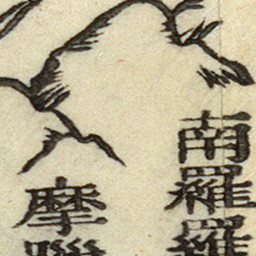 南羅羅
摩臘